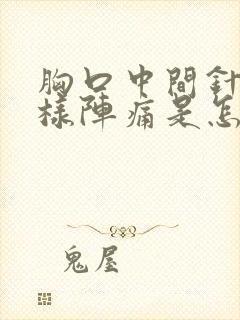 胸口中間針
樣陣痛是怎
鬼屋